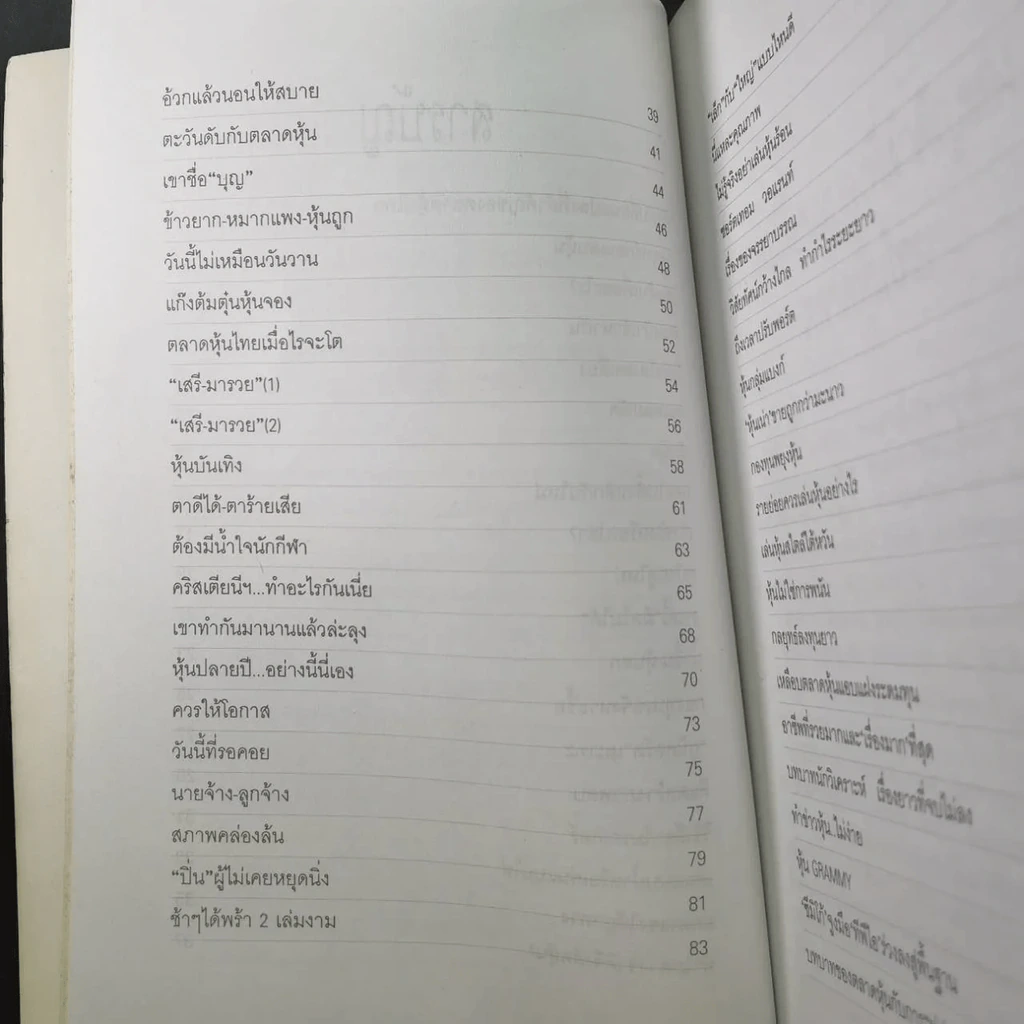 อ้วกแล้วนอนให้สบาย 39
ตะวันดับกับตลาดหุ้น 41
เขาชื่อ“บุญ” 44
ข้าวยาก-หมากแพง-หุ้นถูก 46
วันนี้ไม่เหมือนวันวาน 48
แก๊งต้มตุ๋นหุ้นจอง 50
ตลาดหุ้นไทยเมื่อไรจะโต 52
“เสรี-มารวย”(1) 54
“เสรี-มารวย”(2) 56
หุ้นบันเทิง 58
ตาดีได้-ตาร้ายเสีย 61
ต้องมีน้ำใจนักกีฬา 63
คริสเตียนีฯ...ทำอะไรกันเนี่ย 65
เขาทำกันมานานแล้วล่ะลุง 68
หุ้นปลายปี...อย่างนี้นี่เอง 70
ควรให้โอกาส 73
วันนี้ที่รอคอย 75
นายจ้าง-ลูกจ้าง 77
สภาพคล่องล้น 79
“ปิ่น”ผู้ไม่เคยหยุดนิ่ง 81
ช้าๆได้พร้า 2 เล่มงาม 83
“เล็ก”กับ“ใหญ่”แบบไหนดี
นี่แหละคุณภาพ
ไม่รู้จริงอย่าเล่นหุ้นร้อน
ชอร์ตเทอม วอแรนท์
เรื่องของจรรยาบรรณ
วิสัยทัศน์กว้างไกล ทำกำไรระยะยาว
ถึงเวลาปรับพอร์ต
หุ้นกลุ่มแบงก์
“หุ้นเน่า”ขายถูกกว่ามะนาว
กองทุนพยุงหุ้น
รายย่อยควรเล่นหุ้นอย่างไร
เล่นหุ้นสไตล์ไต้หวัน
หุ้นไม่ใช่การพนัน
กลยุทธ์ลงทุนยาว
เหลือบตลาดหุ้นแอบแฝงระดมทุน
อาชีพที่รวยมากและ“เรื่องมาก”ที่สุด
บทบาทนักวิเคราะห์ เรื่องยาวที่จบไม่ลง
ทำข่าวหุ้น..ไม่ง่าย
หุ้น GRAMMY
“ซีมิโก้”จูงมือ“ทีพีไอ”ร่วงลงสู่พื้นฐาน
บทบาทของตลาดหุ้นกับการ